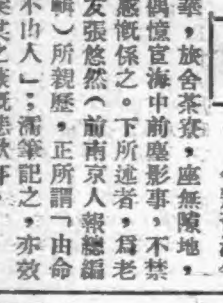 華，旅舍茶寮，座無隙地，
偶憶宦海中前塵影事，不禁
感慨係之。下所述者，爲老
友張悠然（前南京人報總編
輯）所親歷，正所謂「由命
不由人」；濡筆記之，亦效